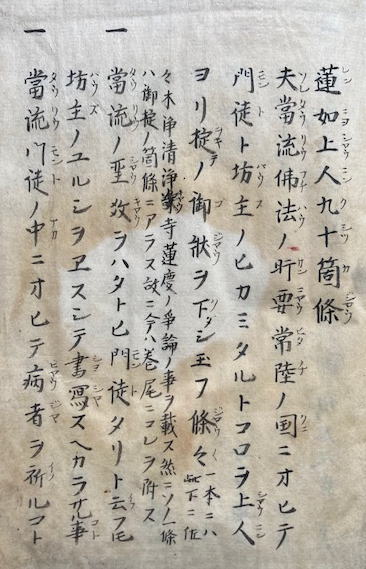 蓮如上人九十箇條
夫當流佛法ノ肝要常陸ノ国ニオヒテ
門徒ト坊主ノヒカミタルトコロヲ上人
ヨリ掟ノ御狀ヲ下シ玉フ條々 一本ニハ此下ニ佐
々木浄清浄寺蓮慶ノ爭論ノ事ヲ載ス然ニソノ一條
ハ御掟ノ箇條ニアラス故ニ今ハ巻尾ニコレヲ附ス
一 當流ノ聖教ヲハタトヒ門徒タリト云フ𪜈
坊主ノユルシヲヱスシテ書寫スヘカラサル事
一 當流門徒ノ中ニオヒテ病者ヲ祈ルコト